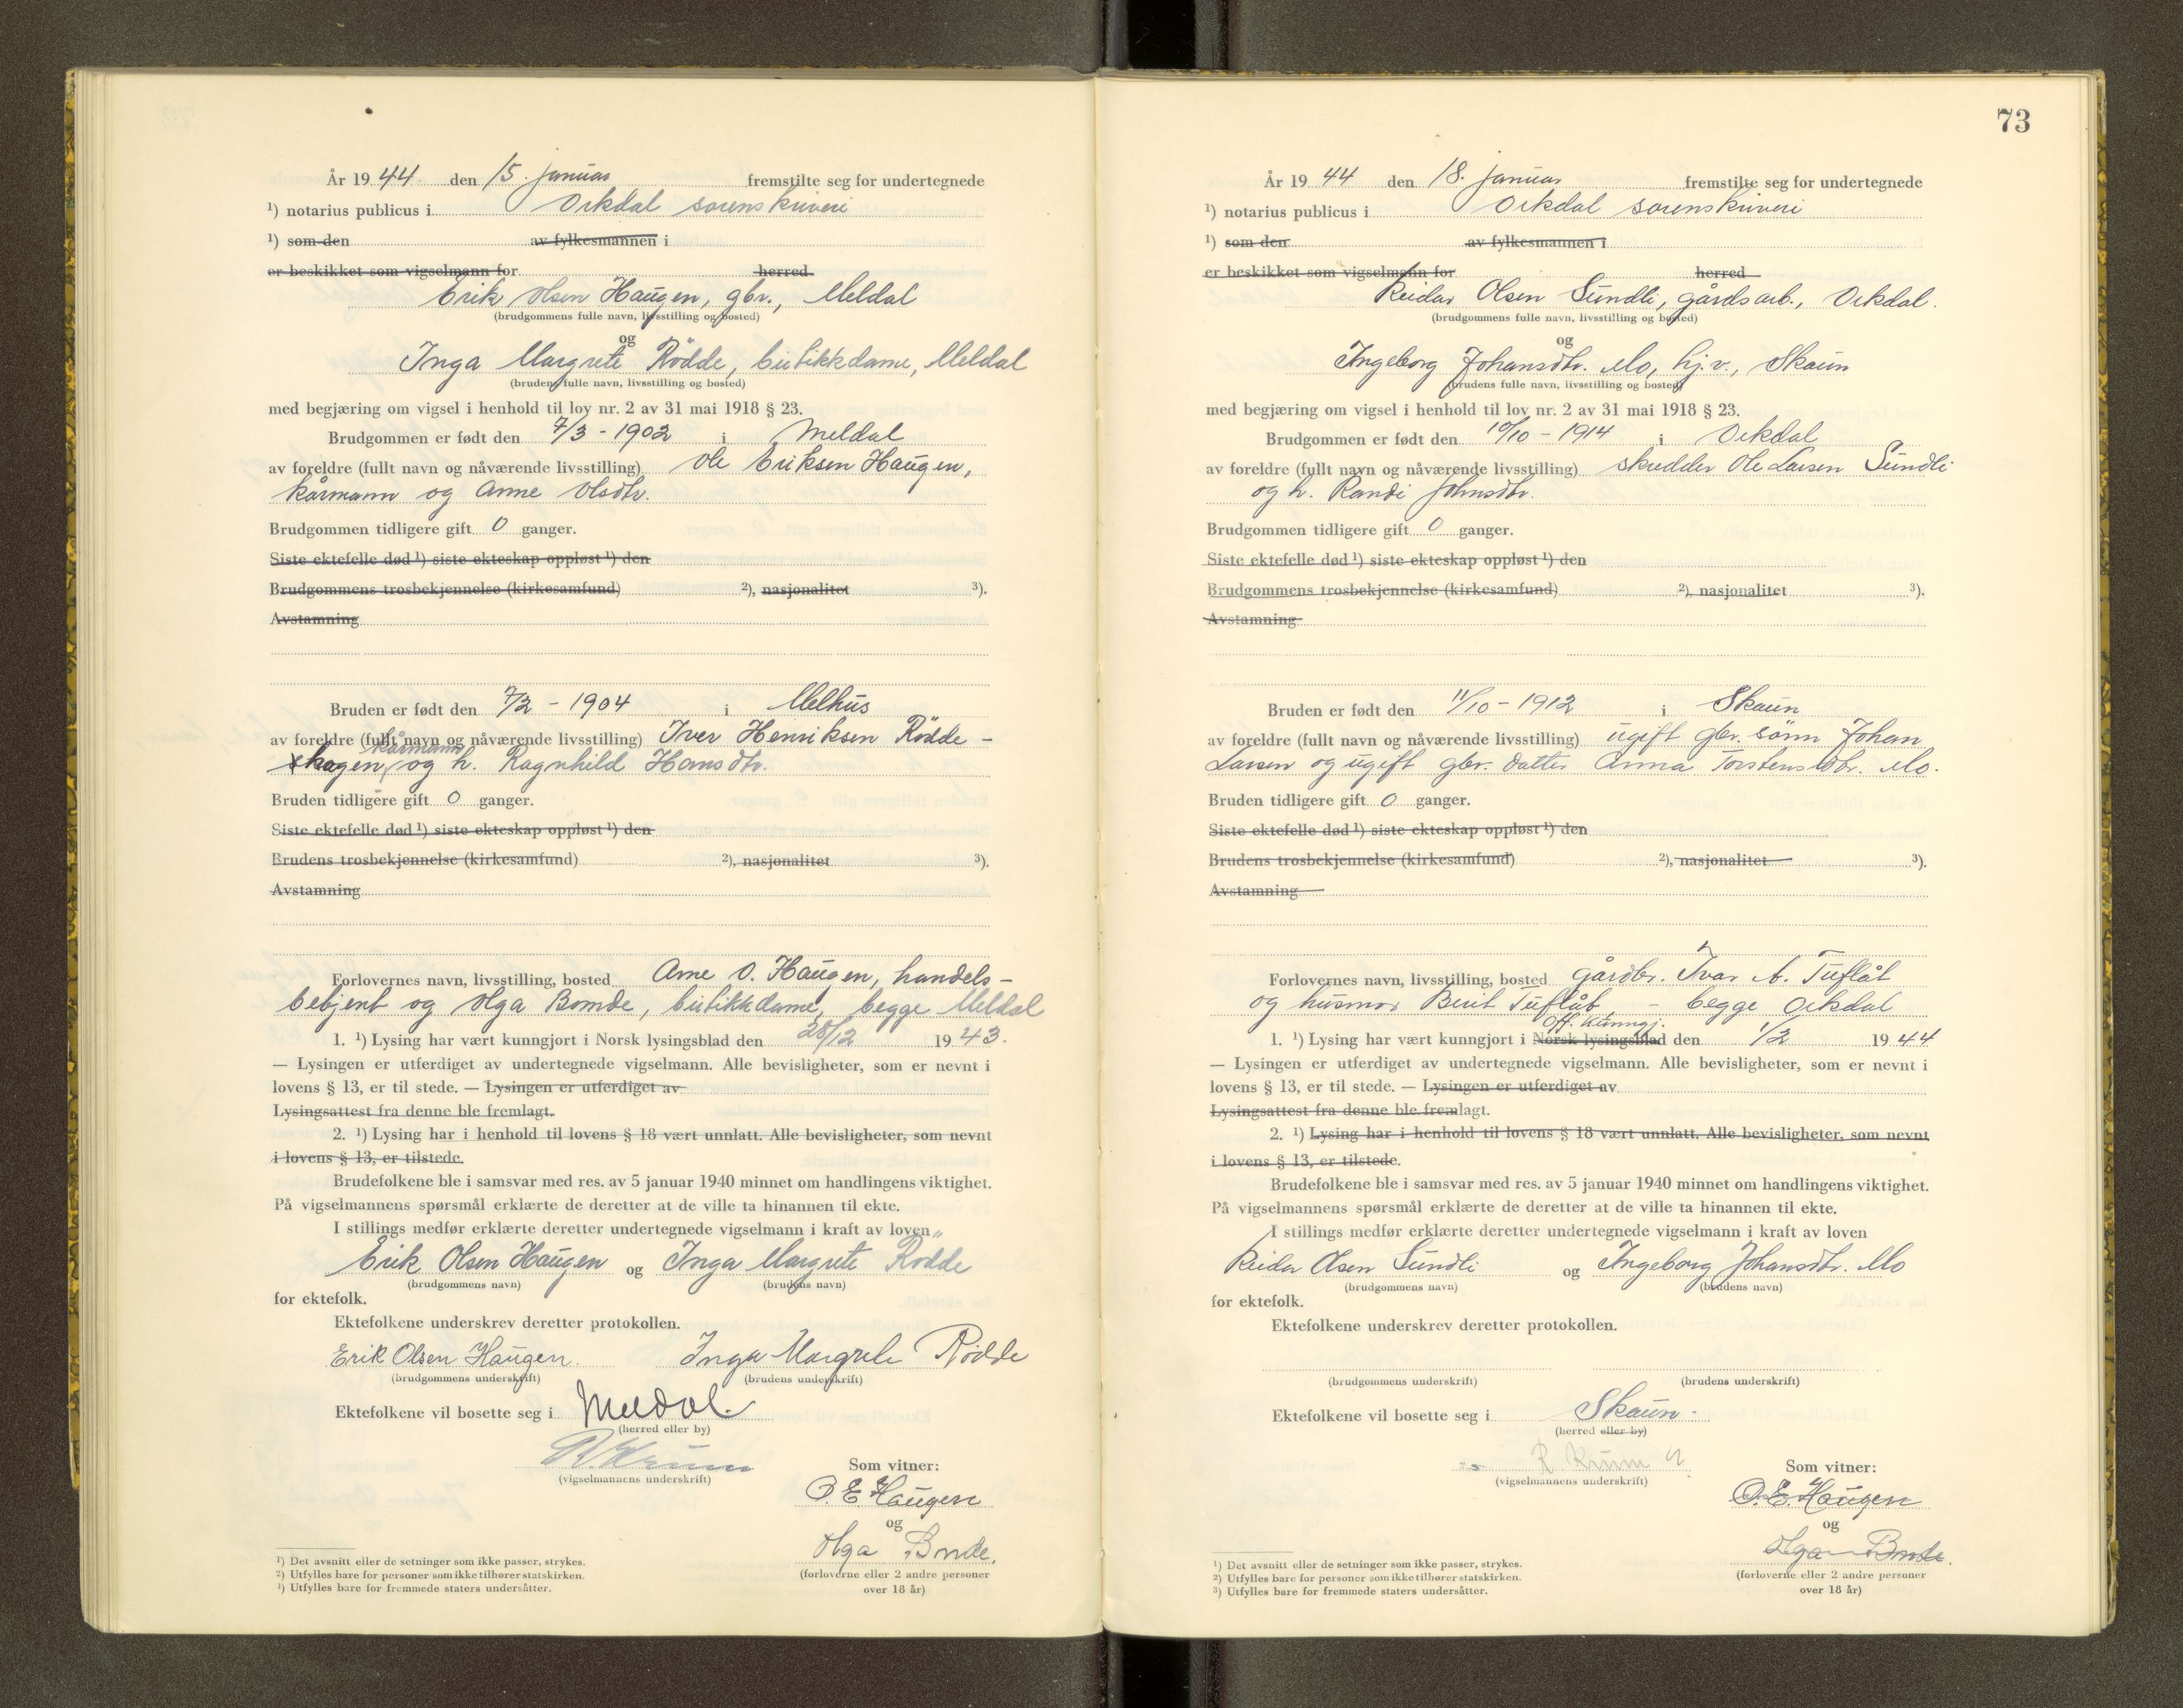 År 1944. den 15. januar fremstilte seg for undertegnede
¹) notarius publicus i Orkdal sorenskriveri
¹) som den av fylkesmannen i
er beskikket som vigselmann for herred
Erik Olsen Haugen, gbr., Meldal
(brudgommens fulle navn, livsstilling og bosted)
og
Inga Margrete Rödde, butikkdame, Meldal
(brudens fulle navn, livsstilling og bosted)
med begjæring om vigsel i henhold til lov nr. 2 av 31 mai 1918 § 23.
Brudgommen er født den 7/3 - 1902 i Meldal
av foreldre (fullt navn og nåværende livsstilling) Ole Eriksen Haugen,
kårmann og Anne Olsdtr.
Brudgommen tidligere gift 0 ganger.
Siste ektefelle død ¹) siste ekteskap oppløst ¹) den
Brudgommens trosbekjennelse (kirkesamfund) ²), nasjonalitet ³).
Avstamning
Bruden er født den 7/2 - 1904 i Melhus
av foreldre (fullt navn og nåværende livsstilling) Iver Henriksen Rödde-
kårmann
skogen, og h. Ragnhild Hansdtr.
Bruden tidligere gift 0 ganger.
Siste ektefelle død ¹) siste ekteskap oppløst ¹) den
Brudens trosbekjennelse (kirkesamfund) ²), nasjonalitet ³).
Avstamning
Forlovernes navn, livsstilling, bosted Arne O. Haugen, handels-
betjent og Olga Bonde, butikkdame, begge Meldal
1. ¹) Lysing har vært kunngjort i Norsk lysingsblad den 28/12 1943.
— Lysingen er utferdiget av undertegnede vigselmann. Alle bevisligheter, som er nevnt i
lovens § 13, er til stede. — Lysingen er utferdiget av
Lysingsattest fra denne ble fremlagt.
2. ¹) Lysing har i henhold til lovens § 18 vært unnlatt. Alle bevisligheter, som nevnt
i lovens § 13, er tilstede.
Brudefolkene ble i samsvar med res. av 5 januar 1940 minnet om handlingens viktighet.
På vigselmannens spørsmål erklærte de deretter at de ville ta hinannen til ekte.
I stillings medfør erklærte deretter undertegnede vigselmann i kraft av loven
Erik Olsen Haugen og Inga Margrete Rödde
(brudgommens navn) (brudens navn)
for ektefolk.
Ektefolkene underskrev deretter protokollen.
Erik Olsen Haugen. Inga Margrete Rödde
(brudgommens underskrift) (brudens underskrift)
Ektefolkene vil bosette seg i Meldal.
(herred eller by)
R. Krum
(vigselmannens underskrift)
Som vitner:
O. E. Haugen
og
Olga Bonde.
(forloverne eller 2 andre personer
over 18 år)
¹) Det avsnitt eller de setninger som ikke passer, strykes.
²) Utfylles bare for personer som ikke tilhører statskirken.
³) Utfylles bare for fremmede staters undersåtter.
73
År 1944 den 18. januar fremstilte seg for undertegnede
¹) notarius publicus i Orkdal sorenskriveri
¹) som den av fylkesmannen i
er beskikket som vigselmann for herred
Reidar Olsen Sundli, gårdsarb., Orkdal.
(brudgommens fulle navn, livsstilling og bosted)
og
Ingeborg Johansdtr. Mo, hj.v., Skaun
(brudens fulle navn, livsstilling og bosted)
med begjæring om vigsel i henhold til lov nr. 2 av 31 mai 1918 § 23.
Brudgommen er født den 10/10 - 1914 i Orkdal
av foreldre (fullt navn og nåværende livsstilling) skredder Ole Larsen Sundli
og h. Randi Johnsdtr.
Brudgommen tidligere gift 0 ganger.
Siste ektefelle død ¹) siste ekteskap oppløst ¹) den
Brudgommens trosbekjennelse (kirkesamfund) ²), nasjonalitet ³).
Avstamning
Bruden er født den 11/10 - 1912 i Skaun
av foreldre (fullt navn og nåværende livsstilling) ugift gbr. sönn Johan
Larsen og ugift gbr. datter Anna Torstensdtr. Mo.
Bruden tidligere gift 0 ganger.
Siste ektefelle død ¹) siste ekteskap oppløst ¹) den
Brudens trosbekjennelse (kirkesamfund) ²), nasjonalitet ³).
Avstamning
Forlovernes navn, livsstilling, bosted gårdbr. Ivar A. Tuflåt
og husmor Berit Tuflåt, - begge Orkdal
Off. Kunngj.
1. ¹) Lysing har vært kunngjort i Norsk lysingsblad den 1/2 1944
— Lysingen er utferdiget av undertegnede vigselmann. Alle bevisligheter, som er nevnt i
lovens § 13, er til stede. — Lysingen er utferdiget av
Lysingsattest fra denne ble fremlagt.
2. ¹) Lysing har i henhold til lovens § 18 vært unnlatt. Alle bevisligheter, som nevnt
i lovens § 13, er tilstede.
Brudefolkene ble i samsvar med res. av 5 januar 1940 minnet om handlingens viktighet.
På vigselmannens spørsmål erklærte de deretter at de ville ta hinannen til ekte.
I stillings medfør erklærte deretter undertegnede vigselmann i kraft av loven
Reidar Olsen Sundli og Ingeborg Johansdtr. Mo
(brudgommens navn) (brudens navn)
for ektefolk.
Ektefolkene underskrev deretter protokollen.
(brudgommens underskrift) (brudens underskrift)
Ektefolkene vil bosette seg i Skaun.
(herred eller by)
R Krum
(vigselmannens underskrift)
Som vitner:
O. E. Haugen
og
Olga Bonde.
(forloverne eller 2 andre personer
over 18 år)
¹) Det avsnitt eller de setninger som ikke passer, strykes.
²) Utfylles bare for personer som ikke tilhører statskirken.
³) Utfylles bare for fremmede staters undersåtter.